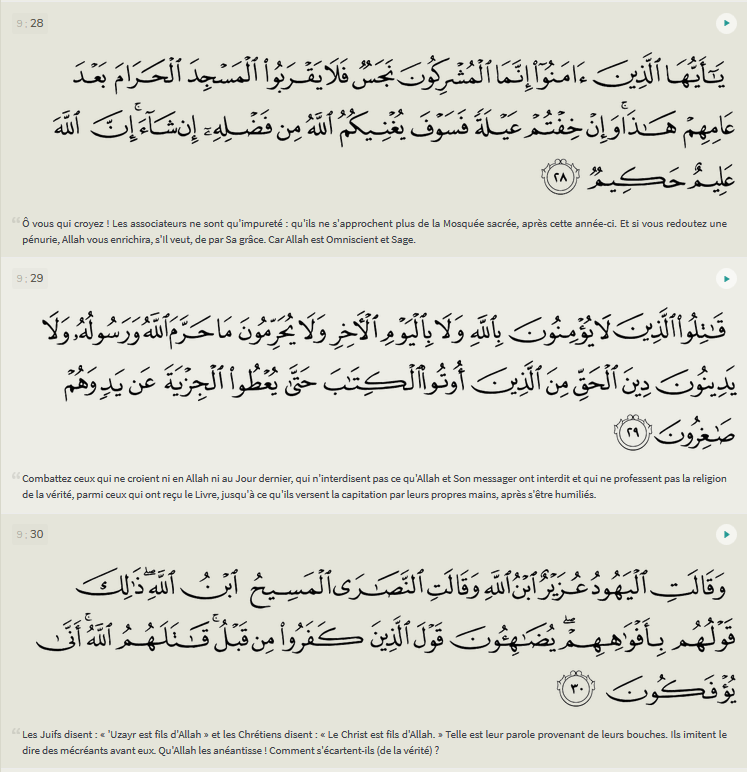 9 : 28
يَـٰٓأَيُّهَا ٱلَّذِينَ ءَامَنُوٓا۟ إِنَّمَا ٱلْمُشْرِكُونَ نَجَسٌ فَلَا يَقْرَبُوا۟ ٱلْمَسْجِدَ ٱلْحَرَامَ بَعْدَ
عَامِهِمْ هَـٰذَا ۚ وَإِنْ خِفْتُمْ عَيْلَةً فَسَوْفَ يُغْنِيكُمُ ٱللَّهُ مِن فَضْلِهِۦٓ إِن شَآءَ ۚ إِنَّ ٱللَّهَ
عَلِيمٌ حَكِيمٌ ٢٨
Ô vous qui croyez ! Les associateurs ne sont qu'impureté : qu'ils ne s'approchent plus de la Mosquée sacrée, après cette année-ci. Et si vous redoutez une
pénurie, Allah vous enrichira, s'Il veut, de par Sa grâce. Car Allah est Omniscient et Sage.
9 : 29
قَـٰتِلُوا۟ ٱلَّذِينَ لَا يُؤْمِنُونَ بِٱللَّهِ وَلَا بِٱلْيَوْمِ ٱلْـَٔاخِرِ وَلَا يُحَرِّمُونَ مَا حَرَّمَ ٱللَّهُ وَرَسُولُهُۥ وَلَا
يَدِينُونَ دِينَ ٱلْحَقِّ مِنَ ٱلَّذِينَ أُوتُوا۟ ٱلْكِتَـٰبَ حَتَّىٰ يُعْطُوا۟ ٱلْجِزْيَةَ عَن يَدٍ وَهُمْ
صَـٰغِرُونَ ٢٩
Combattez ceux qui ne croient ni en Allah ni au Jour dernier, qui n'interdisent pas ce qu'Allah et Son messager ont interdit et qui ne professent pas la religion
de la vérité, parmi ceux qui ont reçu le Livre, jusqu'à ce qu'ils versent la capitation par leurs propres mains, après s'être humiliés.
9 : 30
وَقَالَتِ ٱلْيَهُودُ عُزَيْرٌ ٱبْنُ ٱللَّهِ وَقَالَتِ ٱلنَّصَـٰرَى ٱلْمَسِيحُ ٱبْنُ ٱللَّهِ ۖ ذَٰلِكَ
قَوْلُهُم بِأَفْوَٰهِهِمْ ۖ يُضَـٰهِـُٔونَ قَوْلَ ٱلَّذِينَ كَفَرُوا۟ مِن قَبْلُ ۚ قَـٰتَلَهُمُ ٱللَّهُ ۚ أَنَّىٰ
يُؤْفَكُونَ ٣٠
Les Juifs disent : « 'Uzayr est fils d'Allah » et les Chrétiens disent : « Le Christ est fils d'Allah. » Telle est leur parole provenant de leurs bouches. Ils imitent le
dire des mécréants avant eux. Qu'Allah les anéantisse ! Comment s'écartent-ils (de la vérité) ?